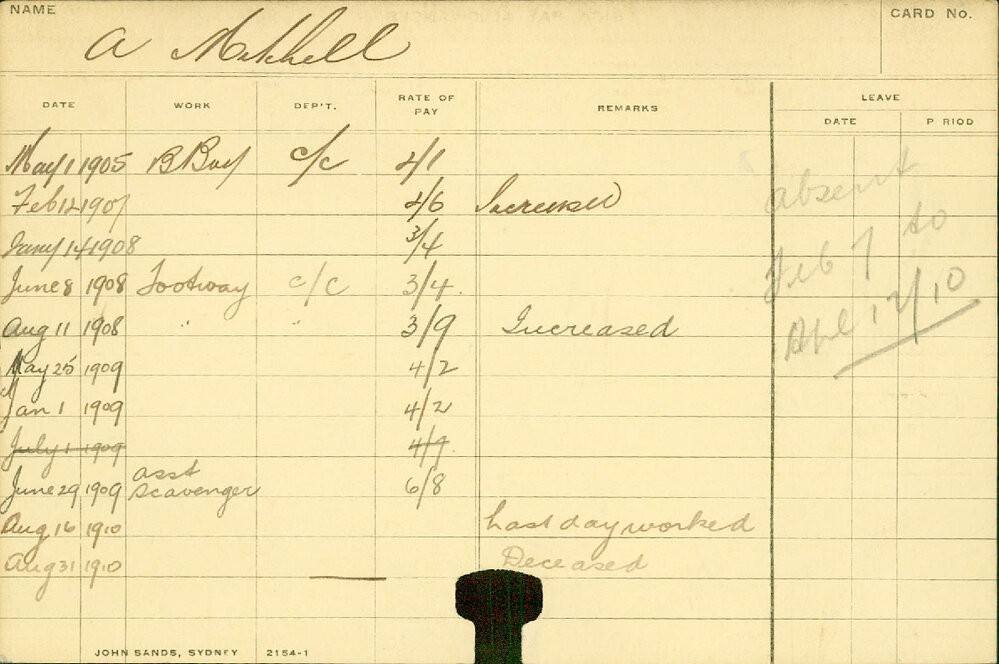 NAME
CARD No.
A Mitchell
DATE WORK DEP'T. RATE OF PAY REMARKS LEAVE
DATE P RIOD
May 1 1905 B Boy c/c 2/1
Feb 12 1907 2/6 Increased
Jany 14 1908 3/4
June 8 1908 Footway c/c 3/4
Aug 11 1908 " " 3/9 Increased
May 25 1909 4/2
Jan 1 1909 4/2
July 1 1909 4/9
June 29 1909 asst Scavenger 6/8
Aug 16 1910 Last day worked
Aug 31 1910 Deceased
absent
Feb 7 to
Apl 12/10
JOHN SANDS, SYDNEY 2154-1